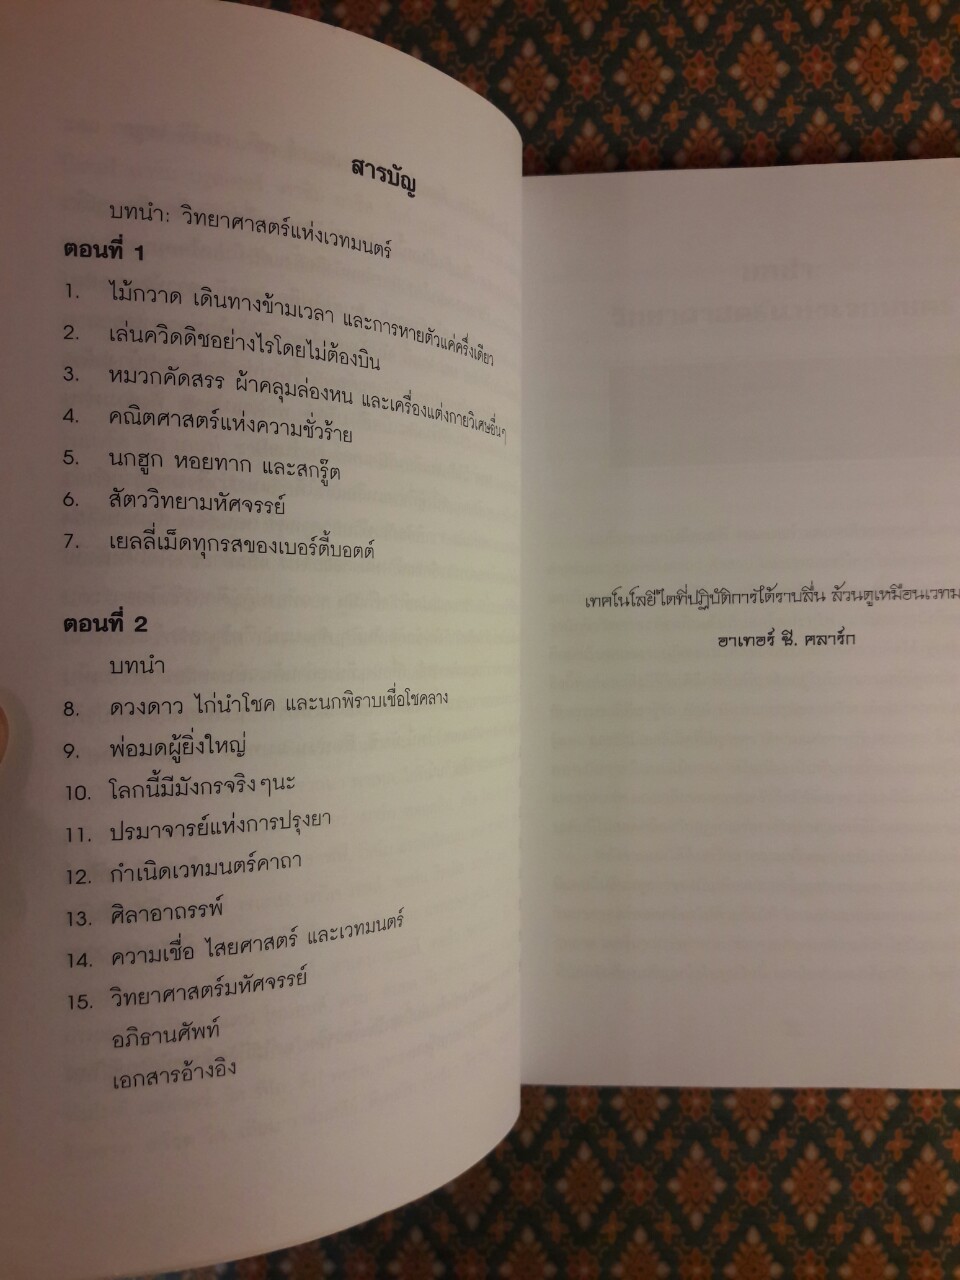 สารบัญ
บทนำ: วิทยาศาสตร์แห่งเวทมนตร์
ตอนที่ 1
1. ไม้กวาด เดินทางข้ามเวลา และการหายตัวแค่ครึ่งเดียว
2. เล่นควิดดิชอย่างไรโดยไม่ต้องบิน
3. หมวกคัดสรร ผ้าคลุมล่องหน และเครื่องแต่งกายวิเศษอื่นๆ
4. คณิตศาสตร์แห่งความชั่วร้าย
5. นกฮูก หอยทาก และสกรู๊ต
6. สัตววิทยามหัศจรรย์
7. เยลลี่เม็ดทุกรสของเบอร์ตี้บอตต์
ตอนที่ 2
บทนำ
8. ดวงดาว ไก่นำโชค และนกพิราบเชื่อโชคลาง
9. พ่อมดผู้ยิ่งใหญ่
10. โลกนี้มีมังกรจริงๆนะ
11. ปรมาจารย์แห่งการปรุงยา
12. กำเนิดเวทมนตร์คาถา
13. ศิลาอาถรรพ์
14. ความเชื่อ ไสยศาสตร์ และเวทมนตร์
15. วิทยาศาสตร์มหัศจรรย์
อภิธานศัพท์
เอกสารอ้างอิง
เทคโนโลยีใดที่ปฏิบัติการได้ราบลื่น ล้วนดูเหมือนเวทม
อาเทอร์ ซี. คลาร์ก